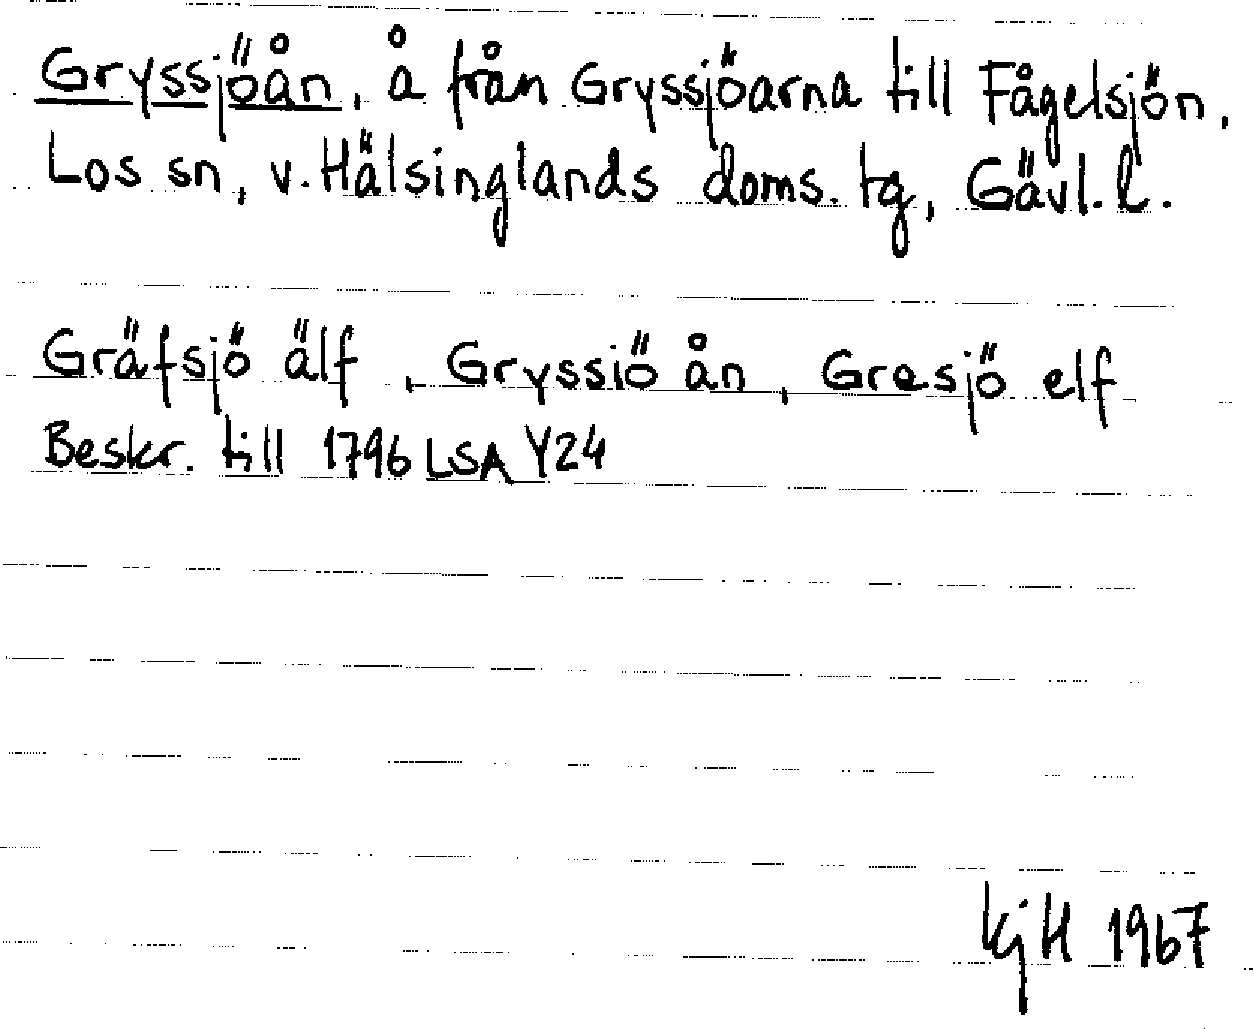 Gryssjöån, å från Gryssjöarna till Fågelsjön.
Los sn, v. Hälsinglands doms. tg, Gävl. l.
Gräfsjö älf, Gryssiö ån, Gresjö elf
Beskr. till 1796 LSA Y24
KjH 1967